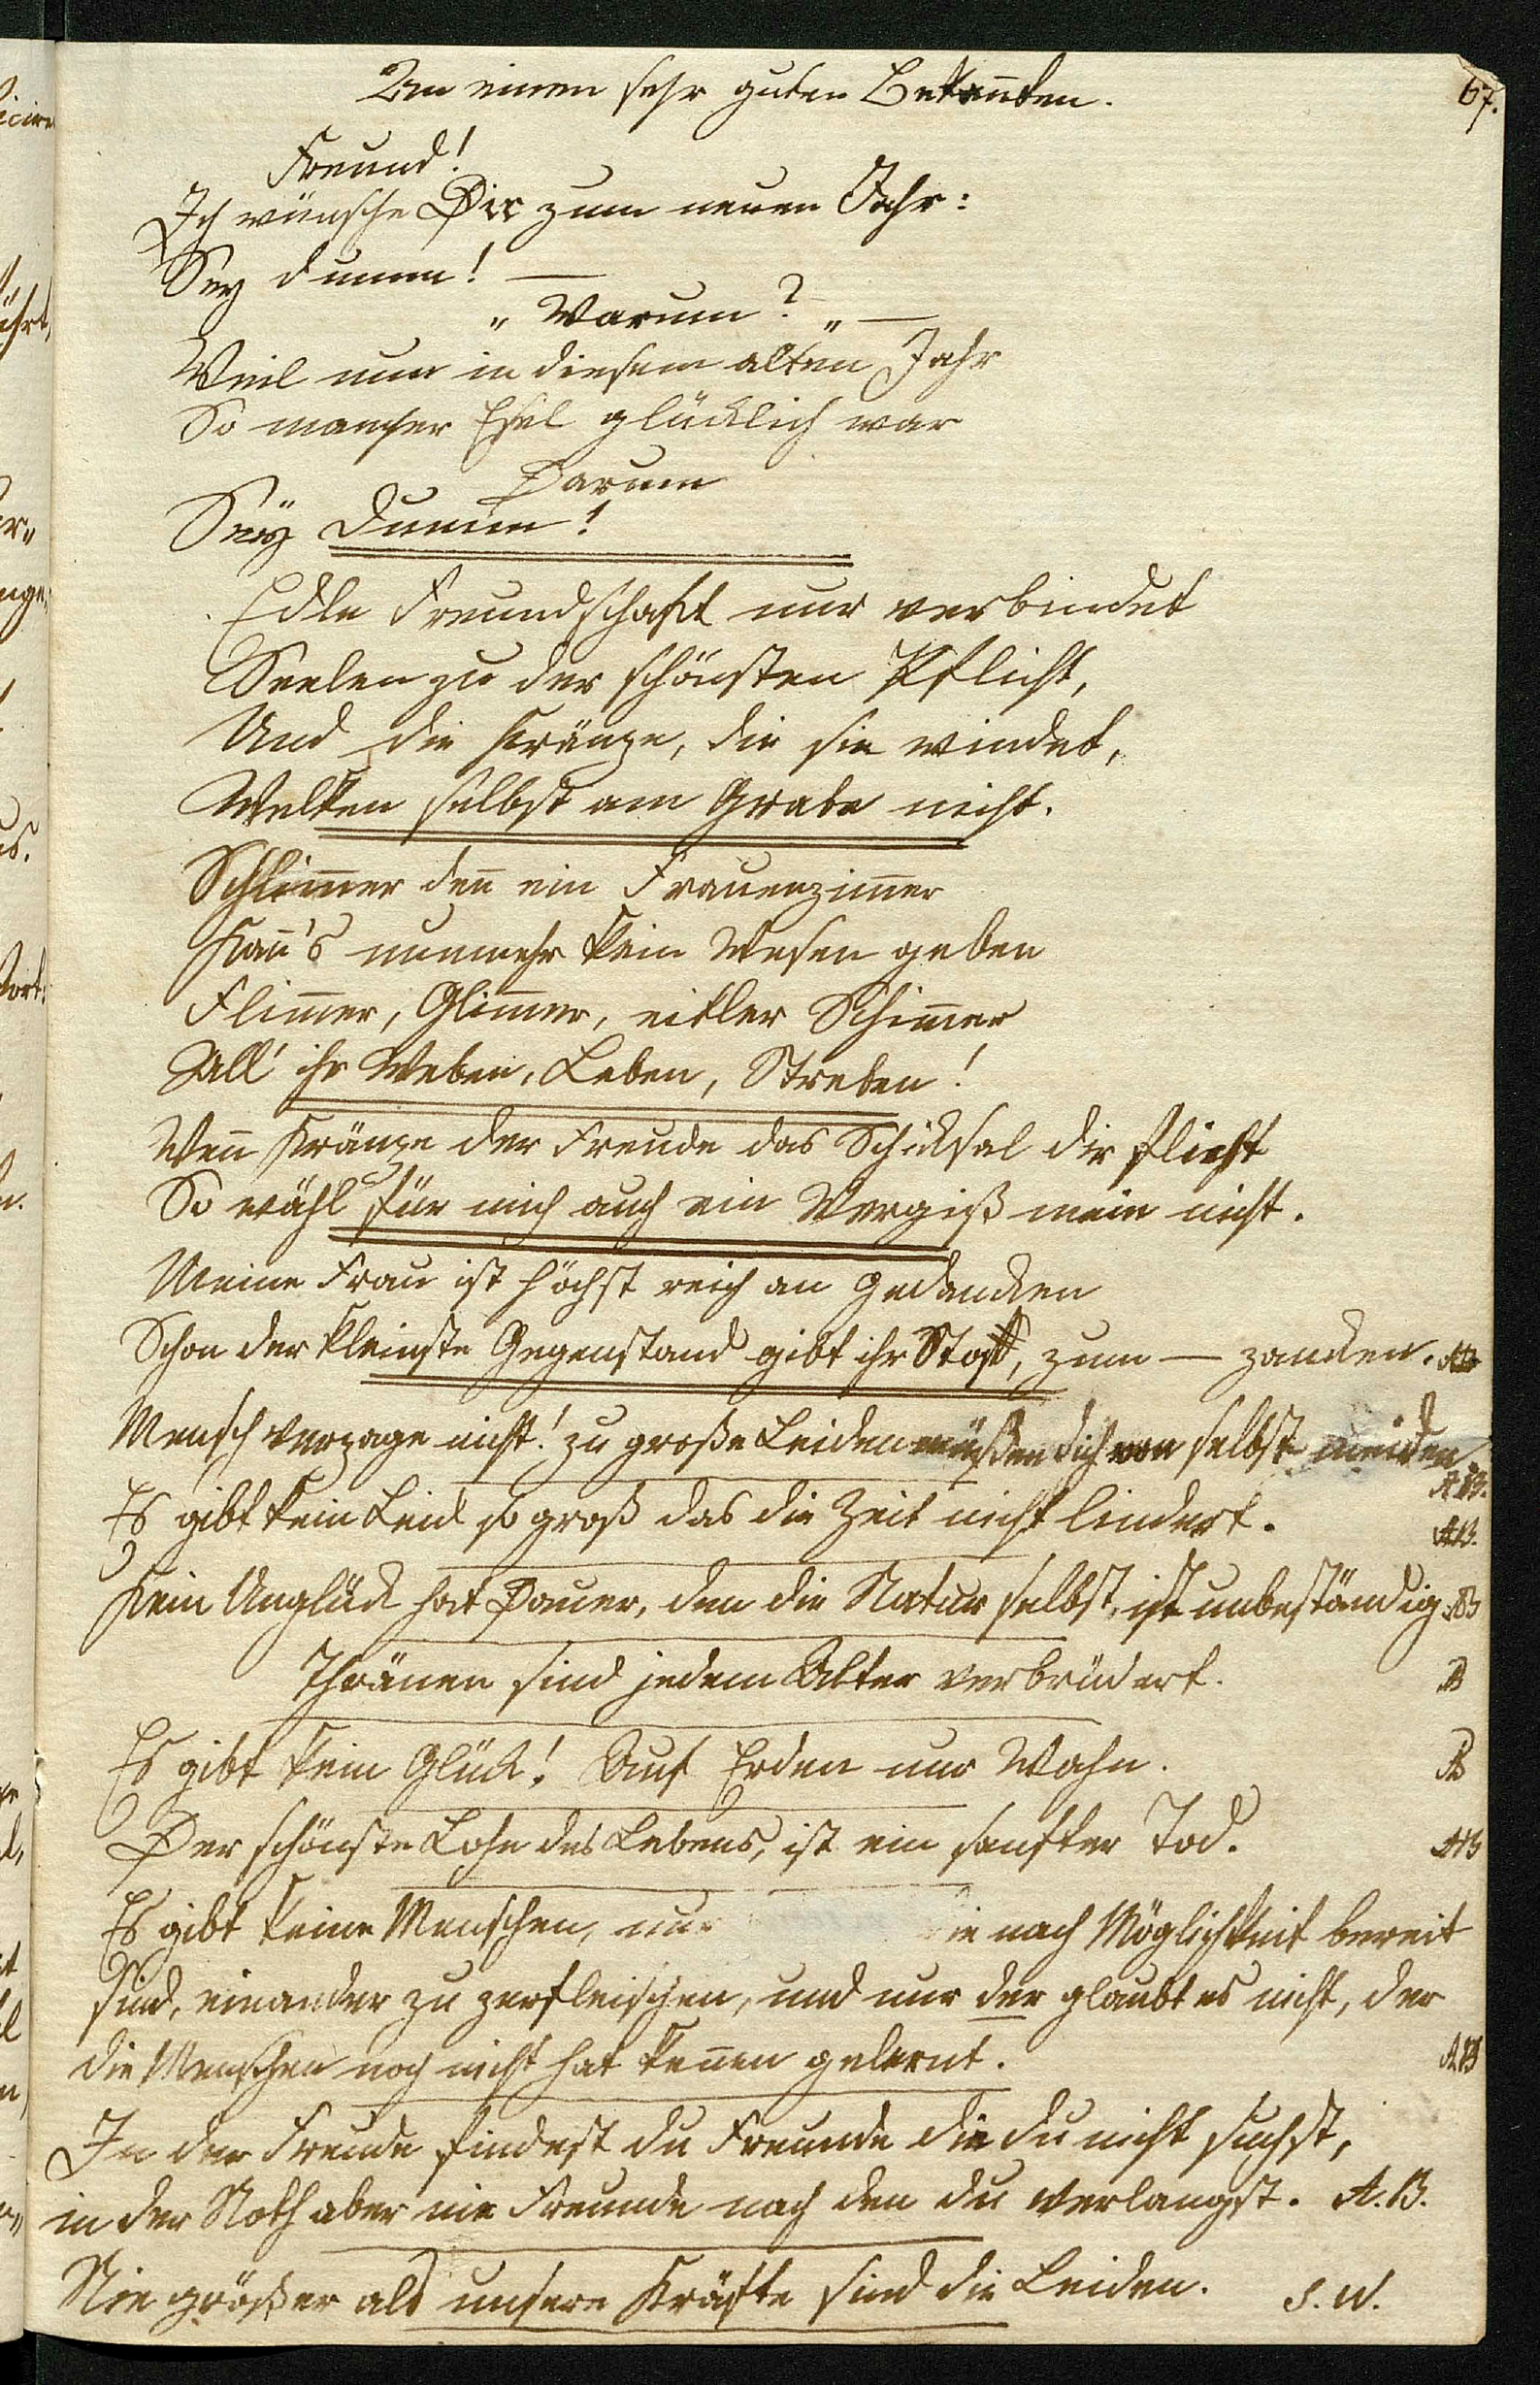 67.
An einen sehr guten Bekan̄ten.
Freund!
Ich wünsche Dir zum neuen Jahr:
Sey dumm! —
„ Warum? „ —
Weil nur in diesem alten Jahr
So mancher Esel glücklich war
Darum
Seÿ dumm!
Edle Freundschaft nur verbindet
Seelen zu der schönsten Pflicht,
Und die Kränze, die sie windet,
Welken selbst am Grabe nicht.
Schlim̄er den̄ ein Frauenzim̄er
Kan̄'s nunmehr kein Wesen geben
Flim̄er, Glim̄er, eitler Schim̄er
All' ihr Weben, Leben, Streben!
Wen̄ Kränze der Freude das Schicksal dir flicht
So wähl für mich auch ein Vergiß mein nicht.
Meine Frau ist höchst reich an Gedancken
Schon der kleinste Gegenstand gibt ihr Stoff, zum — zancken. AB
Mensch verzage nicht! zu große Leiden müßen dich von selbst meiden
AB.
Es gibt kein Leid so groß das die Zeit nicht lindert. AB.
Kein Unglück hat Dauer, den die Natur selbst, ist unbeständig. AB
Thränen sind jedem Alter verbrüdert. AB
Es gibt kein Glück! Auf Erden nur Wahn. AB
Der schönste Lohn des Lebens, ist ein sanfter Tod. AB
Es gibt keine Menschen, nur die nach Möglichkeit bereit
sind, einander zu zerfleischen, und nur der glaubt es nicht, der
die Menschen noch nicht hat ken̄en gelernt. AB
In der Freude findest du Freunde die du nicht suchst,
in der Noth aber nie Freunde nach den du verlangst. A.B.
Nie größer als unsere Kräfte sind die Leiden. S. W.